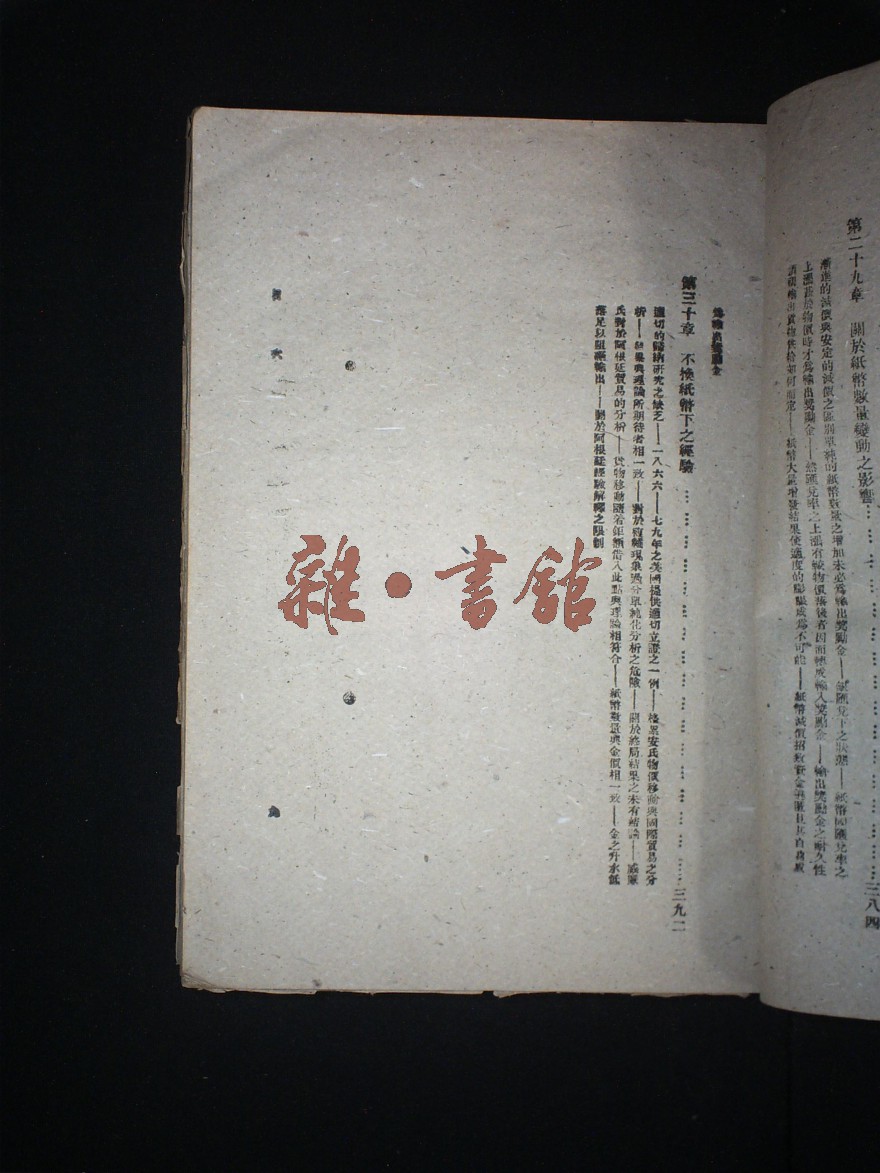 第二十九章　關於紙幣數量變動之影響………三八四
漸進的減價與安定的減價之區別單純的紙幣數量之增加未必爲輸出獎勵金——紙匯兌下之狀態——紙幣國匯兌率之
上漲甚於物價時才爲輸出獎勵金——然匯兌率之上漲有較物價落後者因而轉成輸入獎勵金——輸出獎勵金之耐久性
如何而定——紙幣大量增發結果使適度的膨脹成爲不可能——紙幣減價招致資金
爲輸出獎勵金
第三十章　不換紙幣下之經驗………三九二
適切的歸納研究之缺乏——一八六六——七九年之美國提供適切立證之一例——格累安氏物價移動與國際貿易之分
析——結果與理論所期待者相一致——對於複雜現象過分單純化分析之危險——關於終局結果之未有結論——威廉
氏對於阿根廷貿易的分析——貨物移動隨着巨額借入此點與理論相符合——紙幣數量與金價相一致——金之升水低
落足以阻礙輸出——關於阿根廷經驗解釋之限制
雜·書館